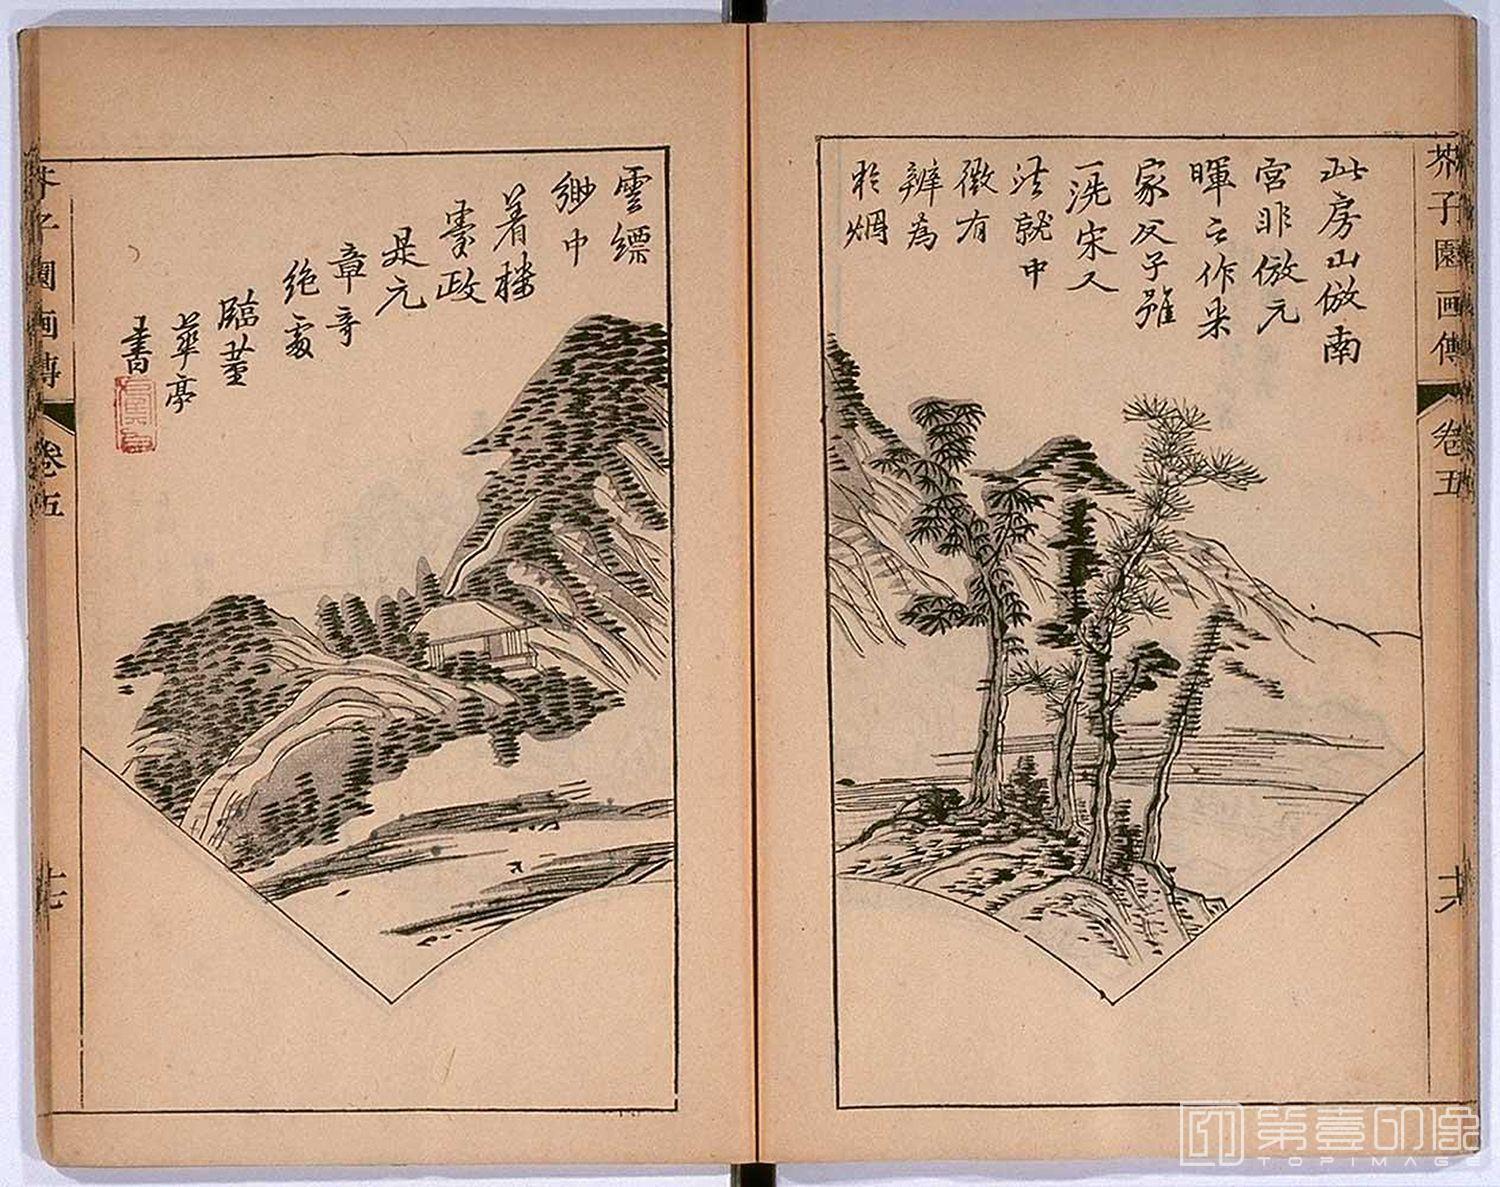 芥子園画傳
卷五
十六
此房山倣南
宮非倣元
暉之作米
家父子雖
一洗宋人
法就中
微有
辨為
於烟
雲縹
緲中
着樓
臺政
是元
章奇
絶處
臨董
華亭
書
芥子園画傳
卷五
十七
第壹印像
TOPIMAGE